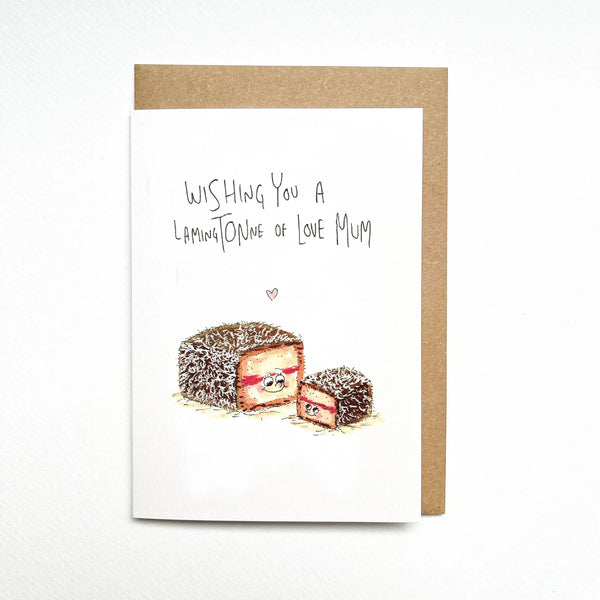 WISHING YOU A
LAMINGTONNE OF LOVE MUM